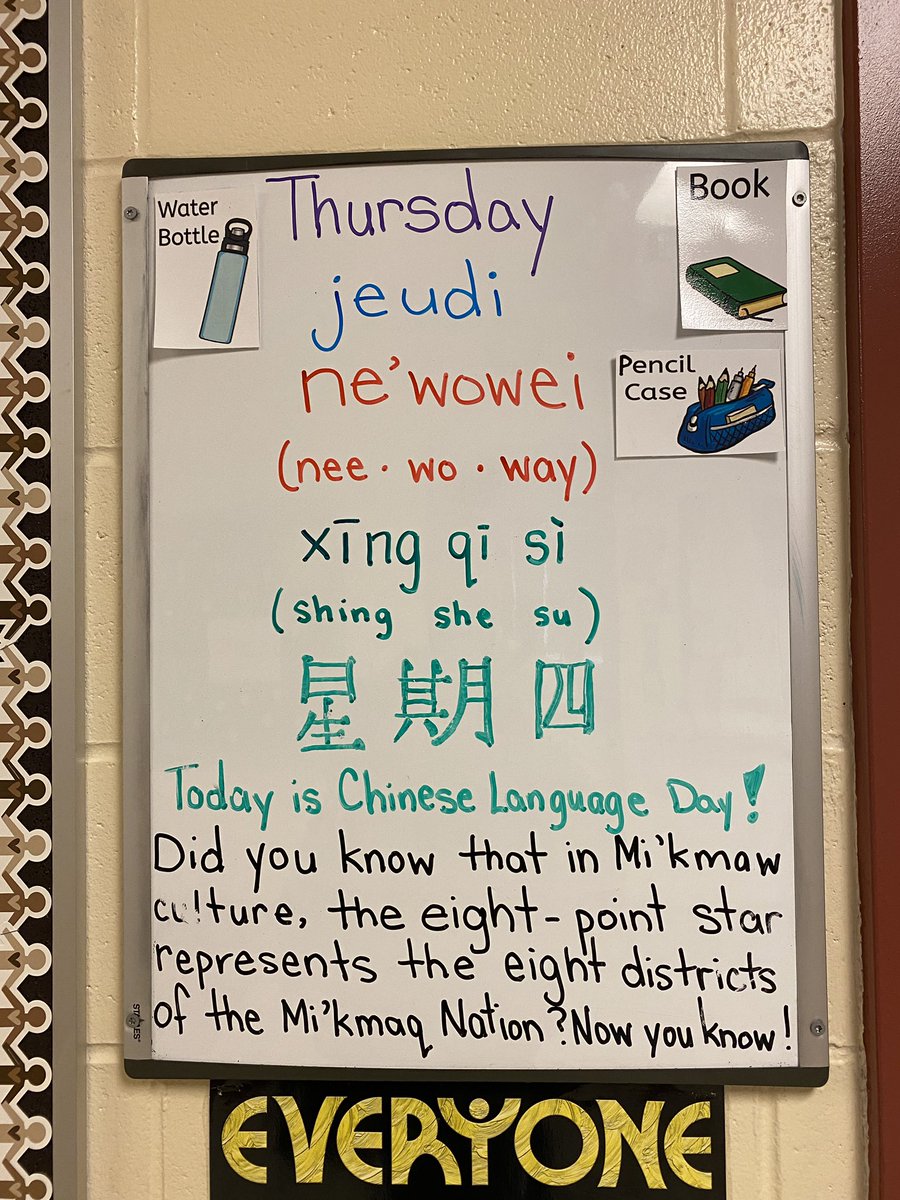 Water
Bottle
Thursday
Book
jeudi
ne'wowei
Pencil
Case
(nee · wo · way)
xīng qī sì
(shing she su)
星期四
Today is Chinese Language Day!
Did you know that in Mi'kmaw
culture, the eight-point star
represents the eight districts
of the Mi'kmaq Nation? Now you know!
STAPLES
EVERYONE